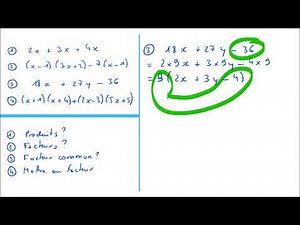 ① 2x + 3x + 4x
② (x-1)(3x+2)-7(x-1)
③ 18x + 27y - 36
④ (x+1)(x+4)+(2x-3)(5x+5)
① Produits ?
② Facteurs ?
③ Facteur commun ?
④ Mettre en facteur
③ 18x + 27y - 36
= 2×9x + 3×9y - 4×9
= 9(2x + 3y - 4)